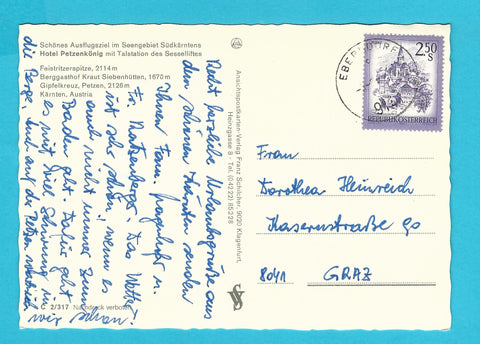 Schönes Ausflugsziel im Seengebiet Südkärntens
Hotel Petzenkönig mit Talstation des Sesselliftes
Feistritzerspitze, 2114 m
Berggasthof Kraut Siebenhütten, 1670 m
Gipfelkreuz, Petzen, 2126 m
Kärnten, Austria
Recht herzliche Urlaubsgrüße aus
dem schönen Kärnten senden
Ihnen Fam. u.
Fr. Das Wetter
ist sehr schön! wenn es
auch nicht immer zum
Baden geht. Dafür geht
es mit viel Schwung in
die Berge. Und auf der Petzen waren
wir schon!
C 2/317 Nachdruck verboten
Ansichtspostkarten-Verlag Franz Schilcher, 9020 Klagenfurt,
Heinzgasse 8 - Tel. (04222) 85228
EBERNDORF
2.50
S
REPUBLIK ÖSTERREICH
Frau
Dorothea Heinrich
Kasernstraße 90
8041 GRAZ